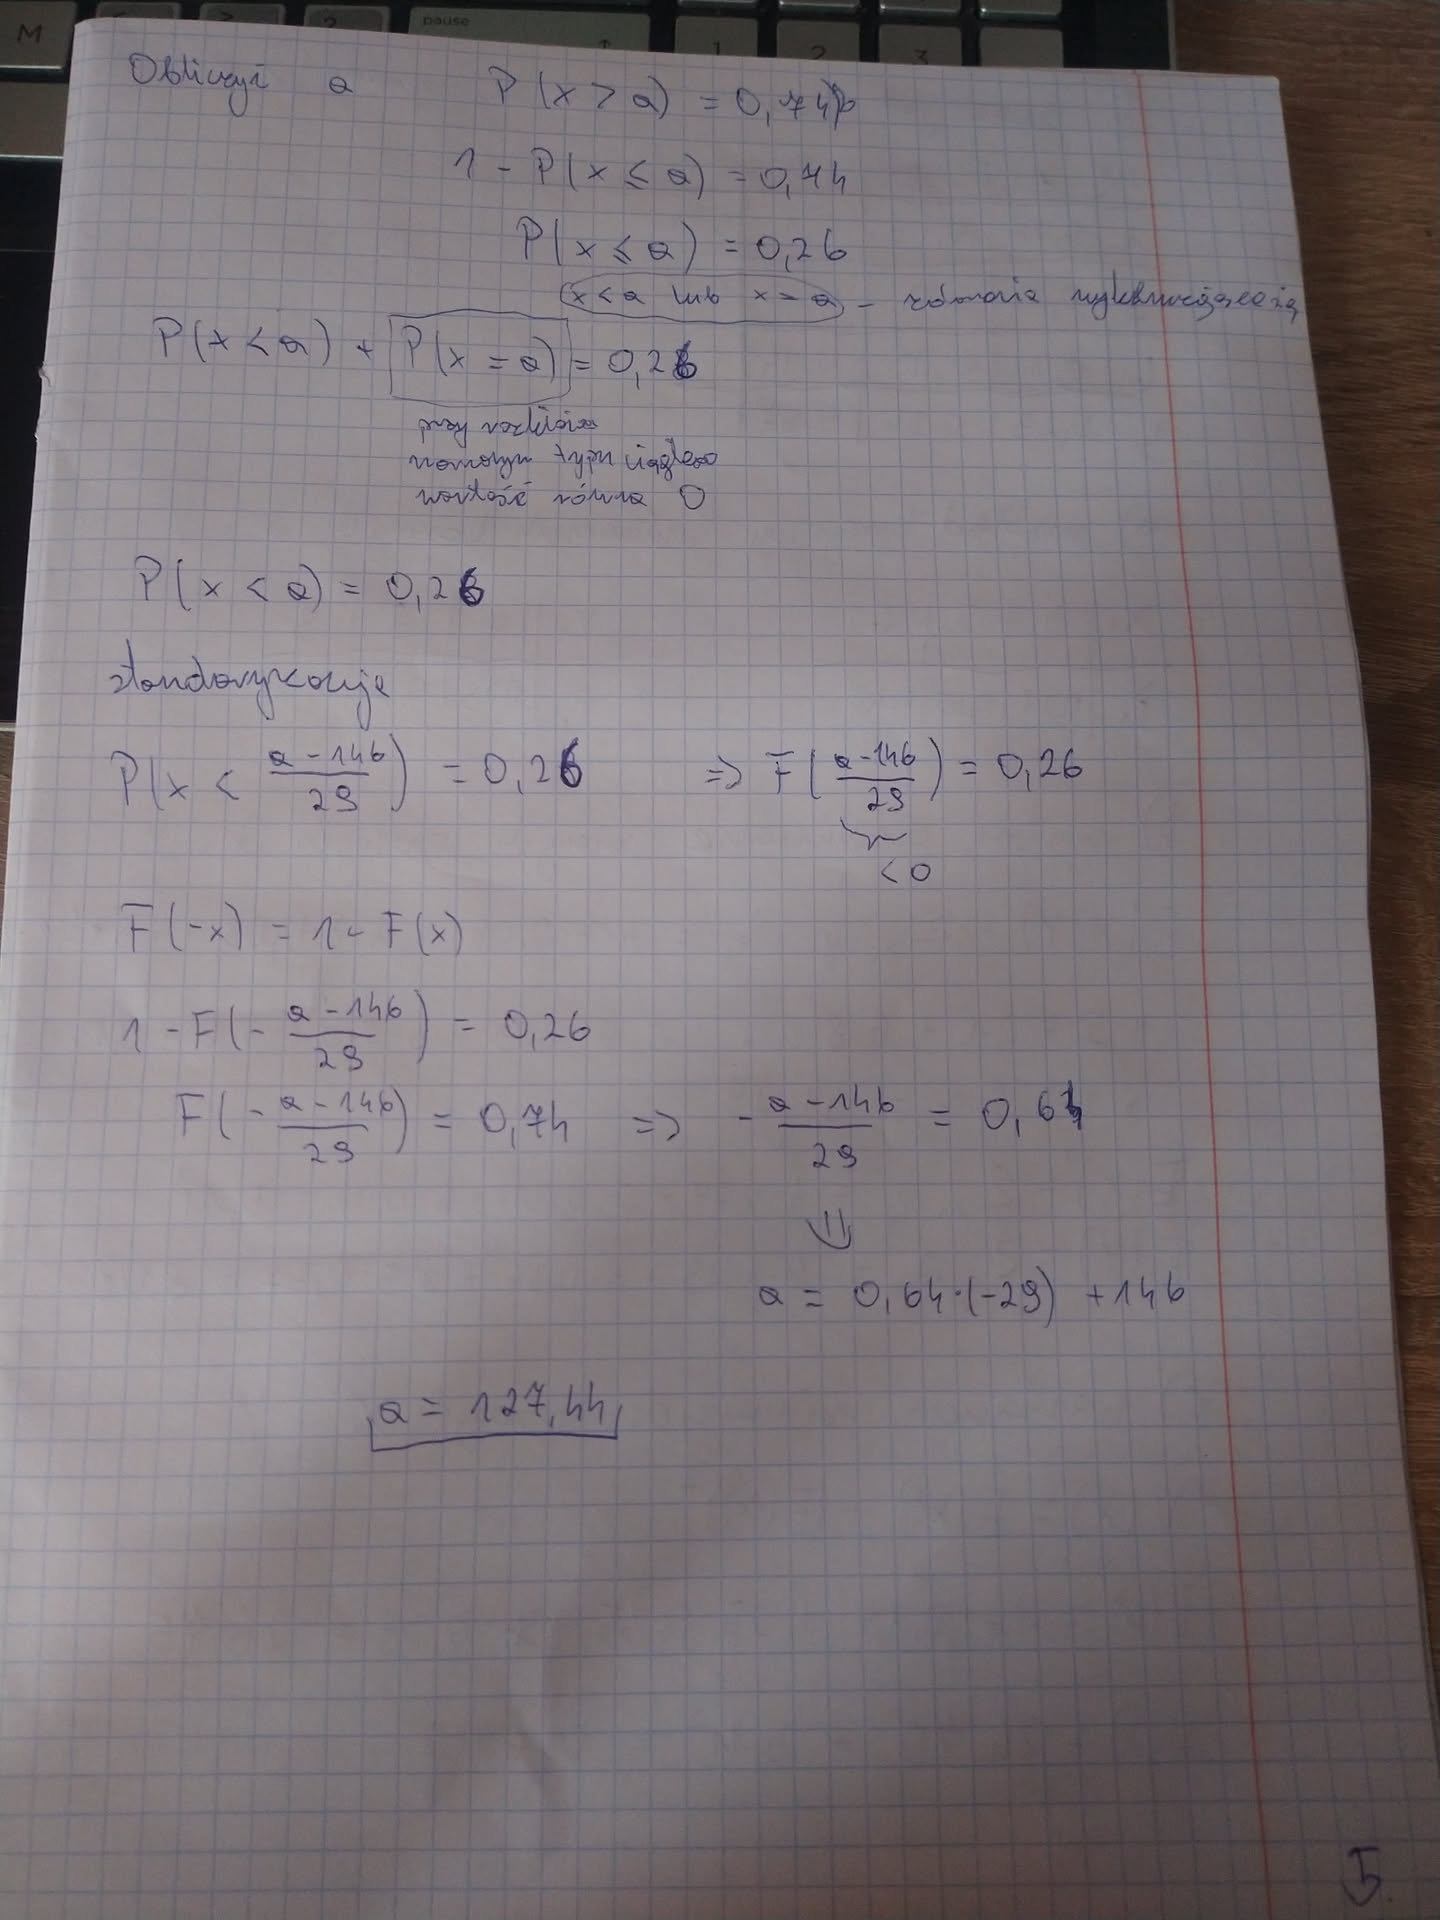 M
pause
1
2
3
Obliczyć a P(x > a) = 0,74
1 - P(x ≤ a) = 0,74
P(x ≤ a) = 0,26
x < a lub x = a - zdarzenia wykluczające się
P(x < a) + P(x = a) = 0,26
przy rozkładzie
normalnym typu ciągłego
wartość równa 0
P(x < a) = 0,26
standaryzacja
P(x < \frac{a - 146}{29}) = 0,26 => F(\frac{a - 146}{29}) = 0,26
< 0
F(-x) = 1 - F(x)
1 - F(-\frac{a - 146}{29}) = 0,26
F(-\frac{a - 146}{29}) = 0,74 => -\frac{a - 146}{29} = 0,64
⇓
a = 0,64·(-29) + 146
a = 127,44
5.